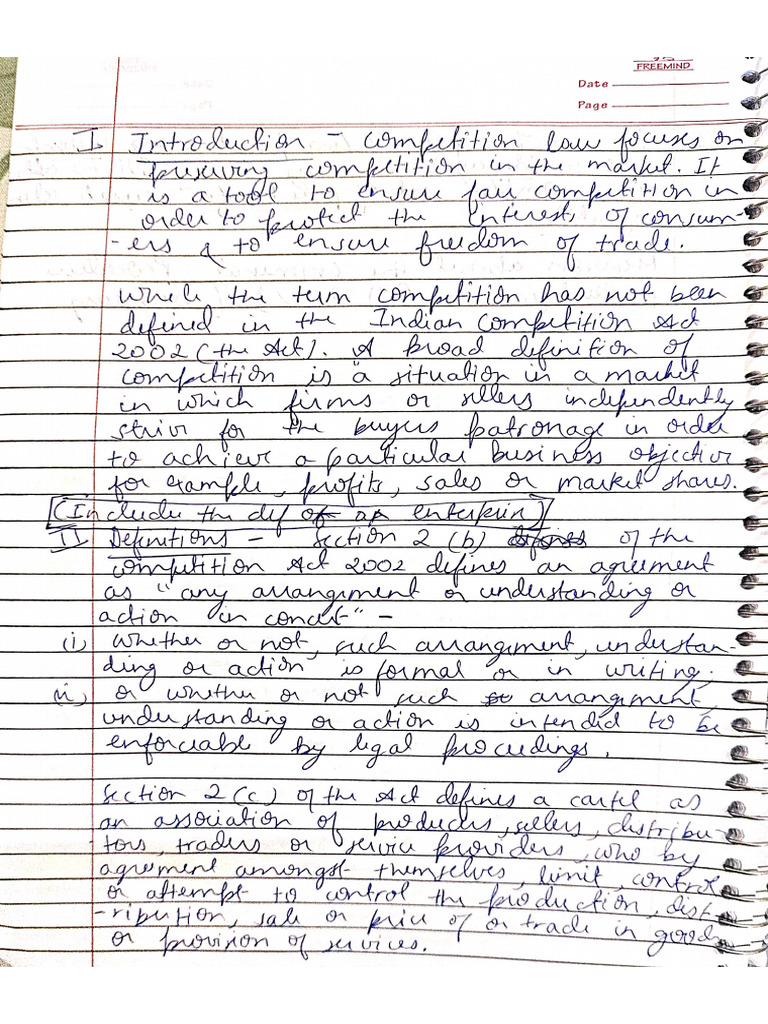 FREEMIND
Date
Page
I Introduction - Competition law focuses on
preserving competition in the market. It
is a tool to ensure fair competition in
order to protect the interests of consum-
-ers & to ensure freedom of trade.
While the term competition has not been
defined in the Indian Competition Act
2002 (the Act). A broad definition of
competition is a situation in a market
in which firms or sellers independently
strive for the buyers patronage in order
to achieve a particular business objective
for example, profits, sales or market shares.
(Include the def of an enterprise)
II Definitions - Section 2 (b) of the
Competition Act 2002 defines an agreement
as "any arrangement or understanding or
action in concert" -
(i) whether or not, such arrangement, understan-
ding or action is formal or in writing.
(ii) or whether or not such arrangement,
understanding or action is intended to be
enforceable by legal proceedings.
Section 2 (c) of the Act defines a cartel as
an association of producers, sellers, distribu-
tors, traders or service providers, who by
agreement amongst themselves, limit, control
or attempt to control the production, dist-
-ribution, sale or price of or trade in goods
or provision of services.